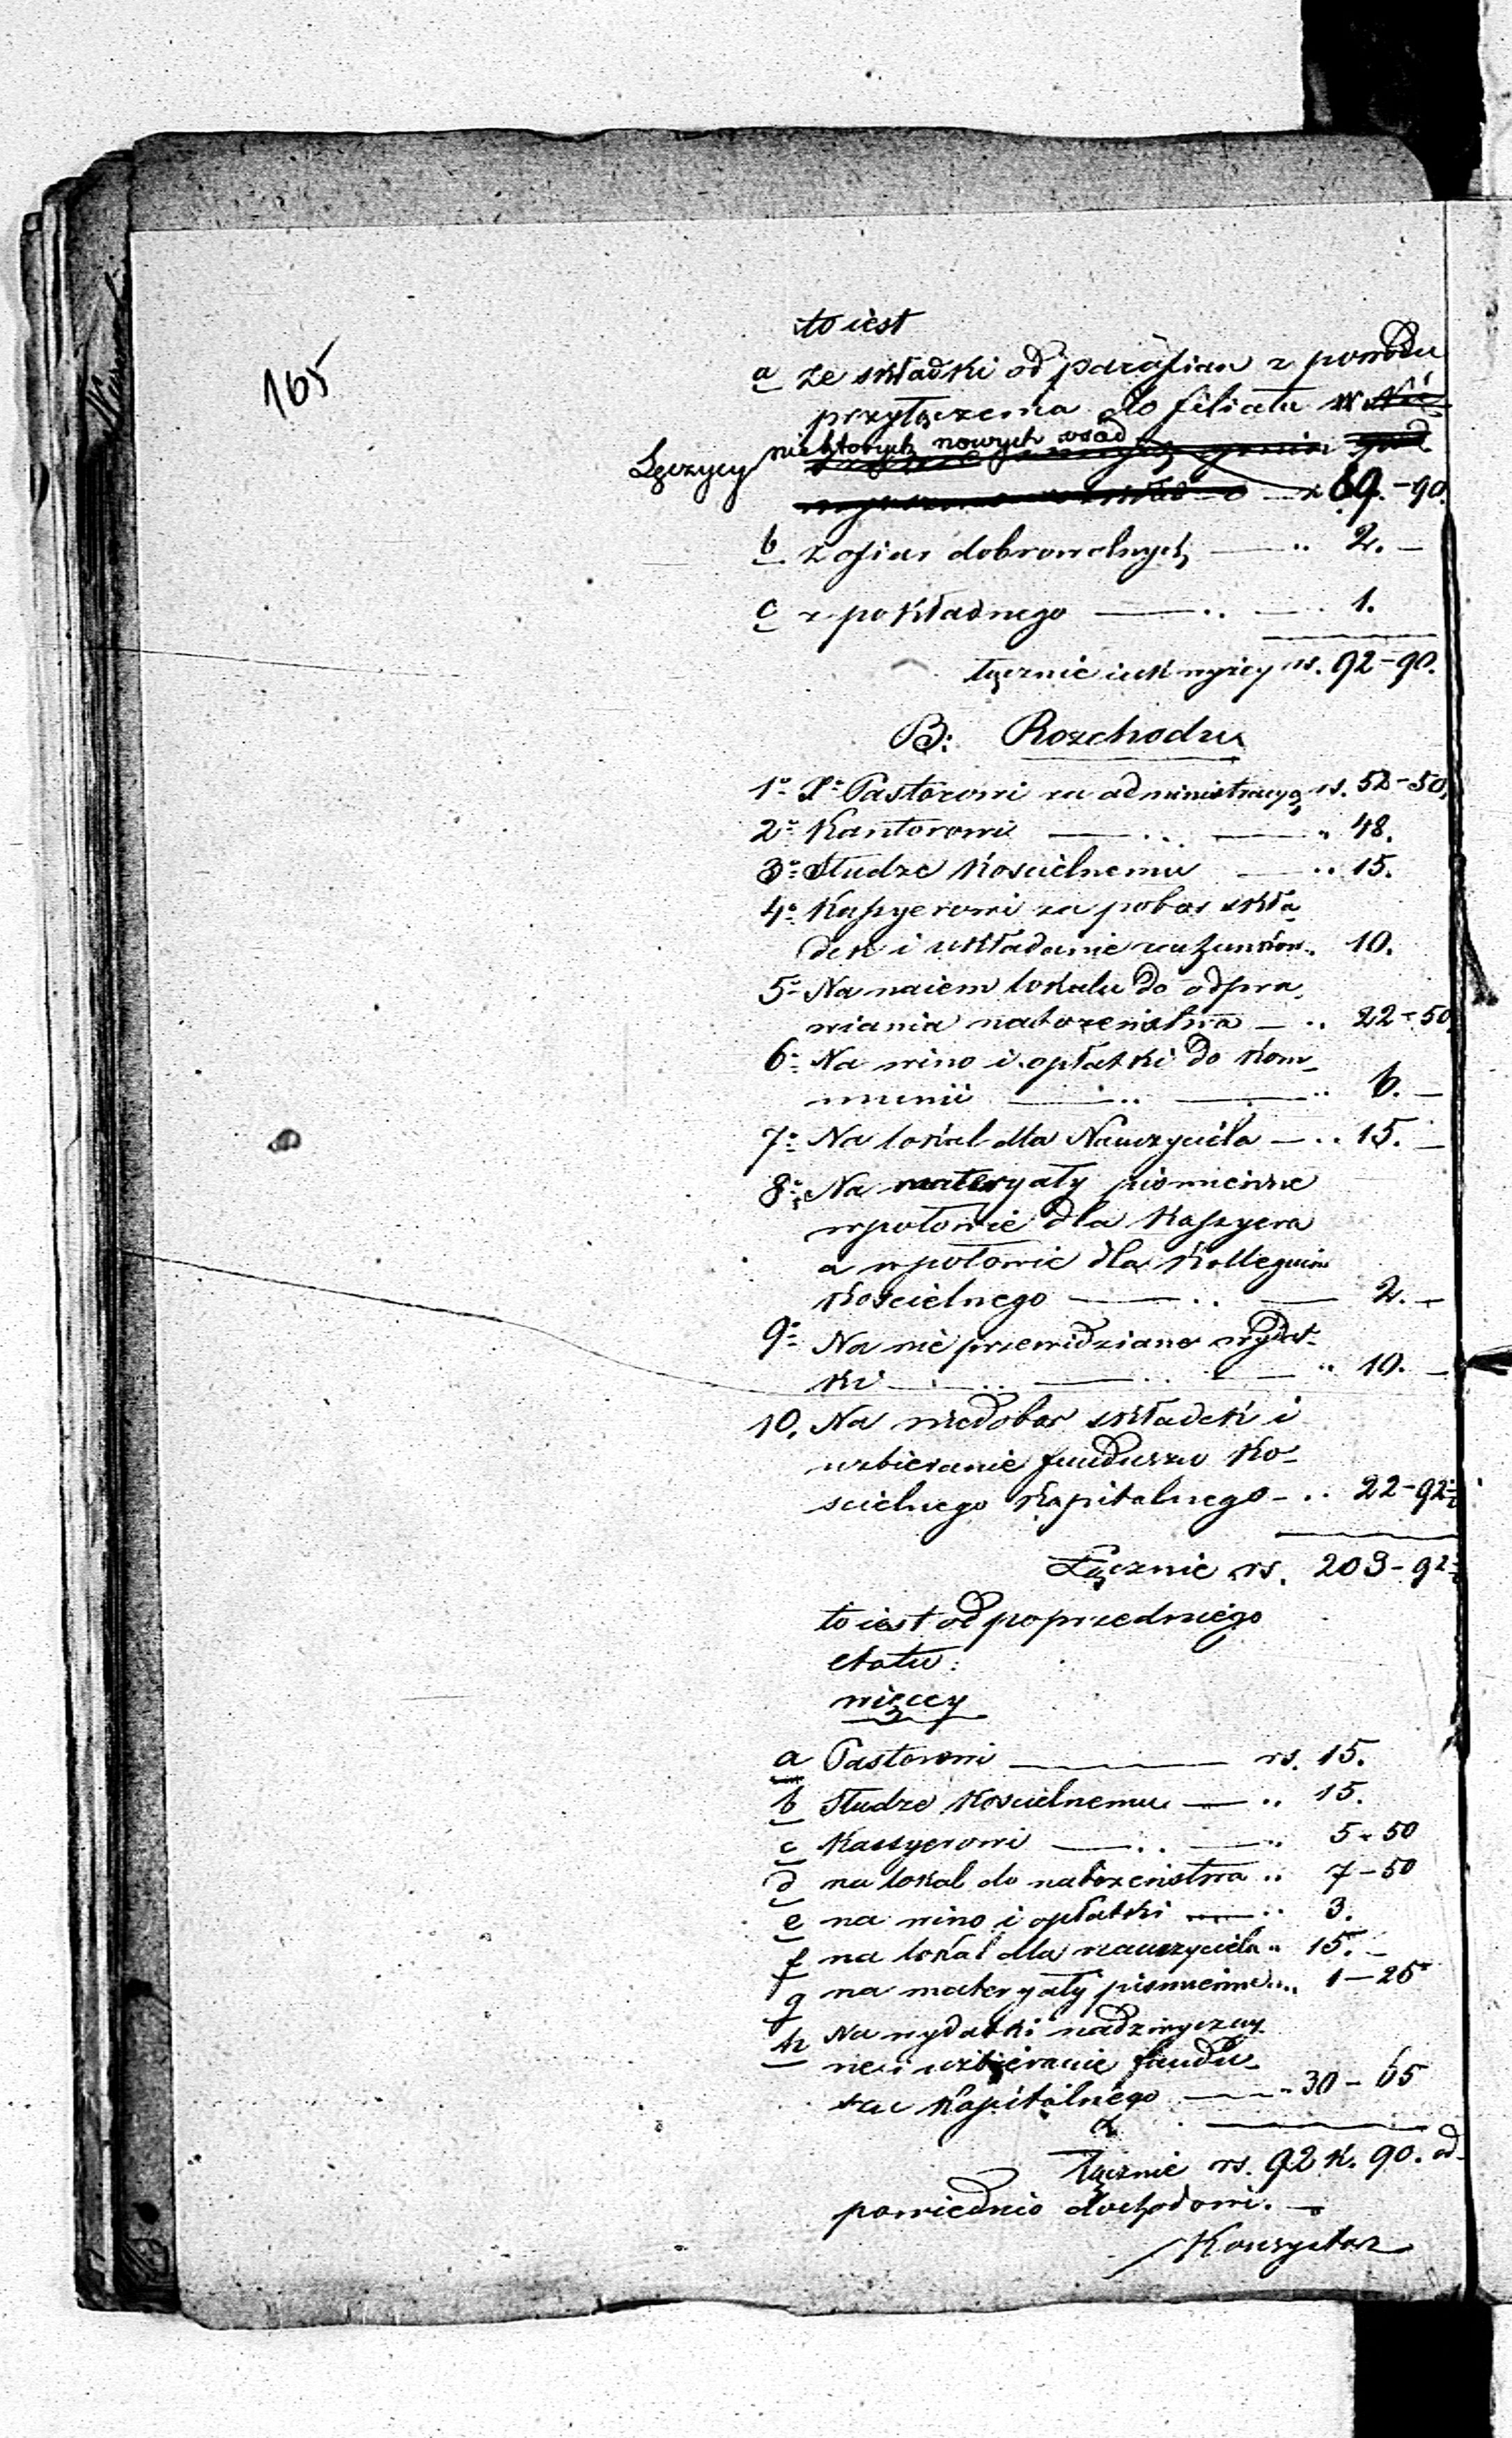 165
to iest
a ze składki od parafian z powodu
przyłączenia do filiału w
Łęczycy niektorych nowych osad
69.-90.
b z ofiar dobrowolnych — „ 2. —
c z pokładnego — „ — „ 1.
łącznie iak wyżey rs. 92-90.
B: Rozchodu
1° X° Pastorowi za administracyą rs. 52-50,
2° Kantorowi — „ — „ 48.
3° Słudze Koscielnemu — „ 15.
4° Kassyerowi za pobor skła
dek i układanie rachunków „ 10.
5° Na naiem lokalu do odpra
wiania nabozenstwa — „ 22-50
6° Na wino i opłatki do Kom
munii — „ — „ 6. —
7° Na lokal dla Nauczyciela — „ 15. —
8° Na materyały pismienne
wpołowie dla Kassyera
a wpołowie dla Kollegium
Koscielnego — „ — 2. —
9° Na nie przewidziane wydat-
ki — „ — „ — „ 10. —
10. Na niedobor składek i
uzbieranie funduszu Ko-
scielnego Kapitalnego — „ 22-92½
Łącznie rs. 203-92½
to iest od poprzedniego
etatu:
więcey
a Pastorowi — rs. 15.
b Słudze Koscielnemu — „ 15.
c Kassyerowi — „ — „ 5-50
d na lokal do nabozenstwa „ 7-50
e na wino i opłatki — „ 3.
f na lokal dla nauczyciela „ 15. —
g na materyały pismienne „ 1-25
h Na wydatki nadzwyczay
ne i uzbieranie fundu-
szu Kapitalnego — „ 30-65
łącznie rs. 92 k. 90. od-
powiednio dochodowi. —
Konsystorz